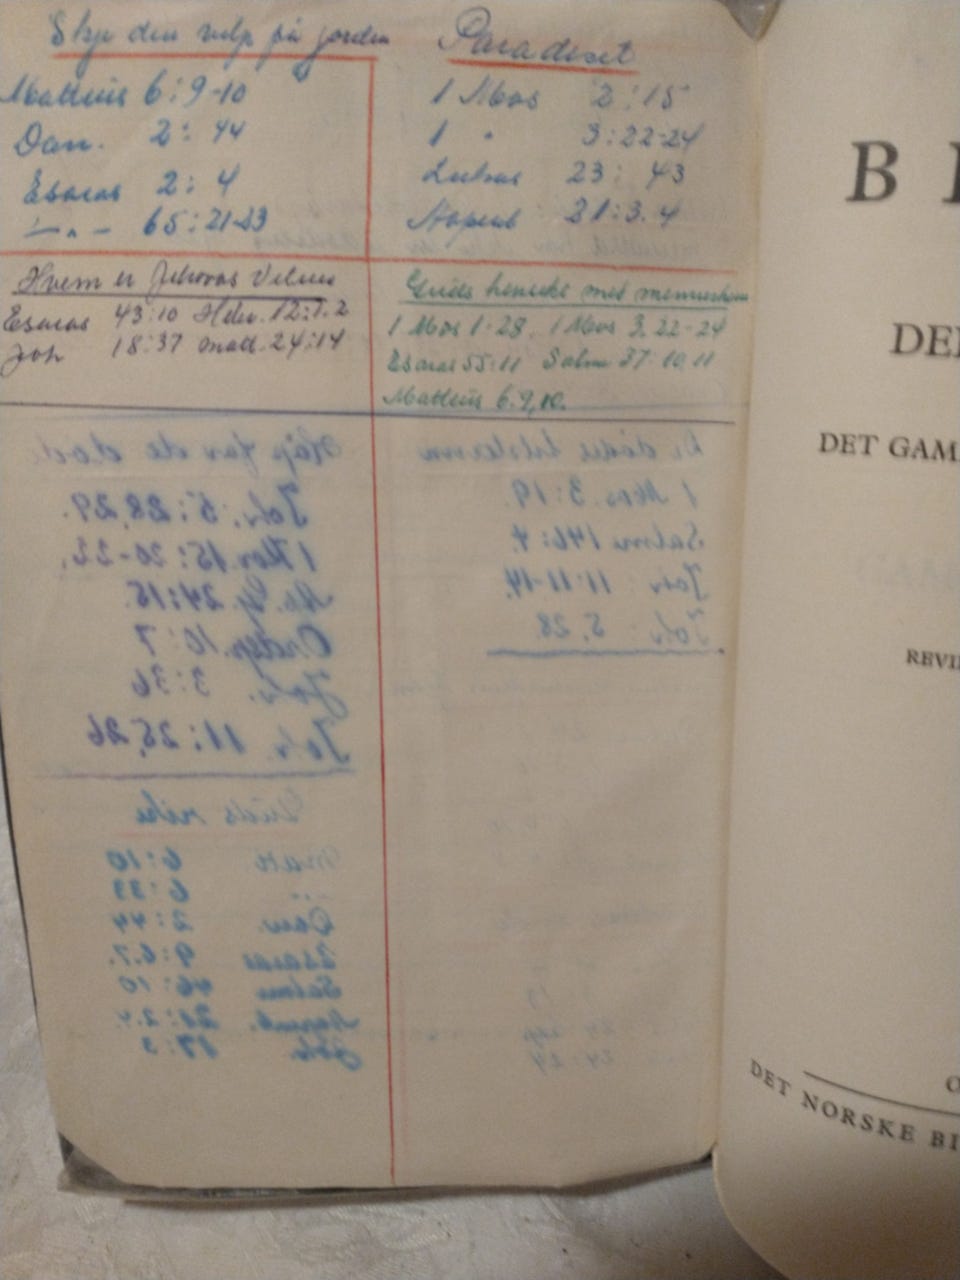 Skje din vilje på jorden
Matteus 6:9-10
Dan. 2: 44
Esaias 2: 4
— " — 65:21-23
Paradiset
1 Mos 2:15
1 " 3:22-24
Lukas 23: 43
Åpenb 21:3.4
Hvem er Jehovas Vitner
Esaias 43:10 Hebr. 12:1.2
Joh 18:37 Matt. 24:14
Guds hensikt med menneskene
1 Mos 1-28. 1 Mos 3.22-24
Esaias 55:11 Salm 37.10,11
Matteus 6.9,10.
Håp for de døde
Joh. 5:28,29.
1 Kor. 15:20-22.
Ap. Gj. 24:15.
Ordsp. 10:7
Joh. 3:36
Joh. 11:25,26
Guds rike
Matt. 6:10
" 6:33
Dan. 2:44
Esaias 9:6.7.
Salme 46:10
Joh. 17:3
De dødes tilstand
1 Mos. 3:19.
Salme 146:4.
Joh: 11:11-14.
Joh: 5.28.
B
DE
DET GAM
REVI
O
DET NORSKE BI